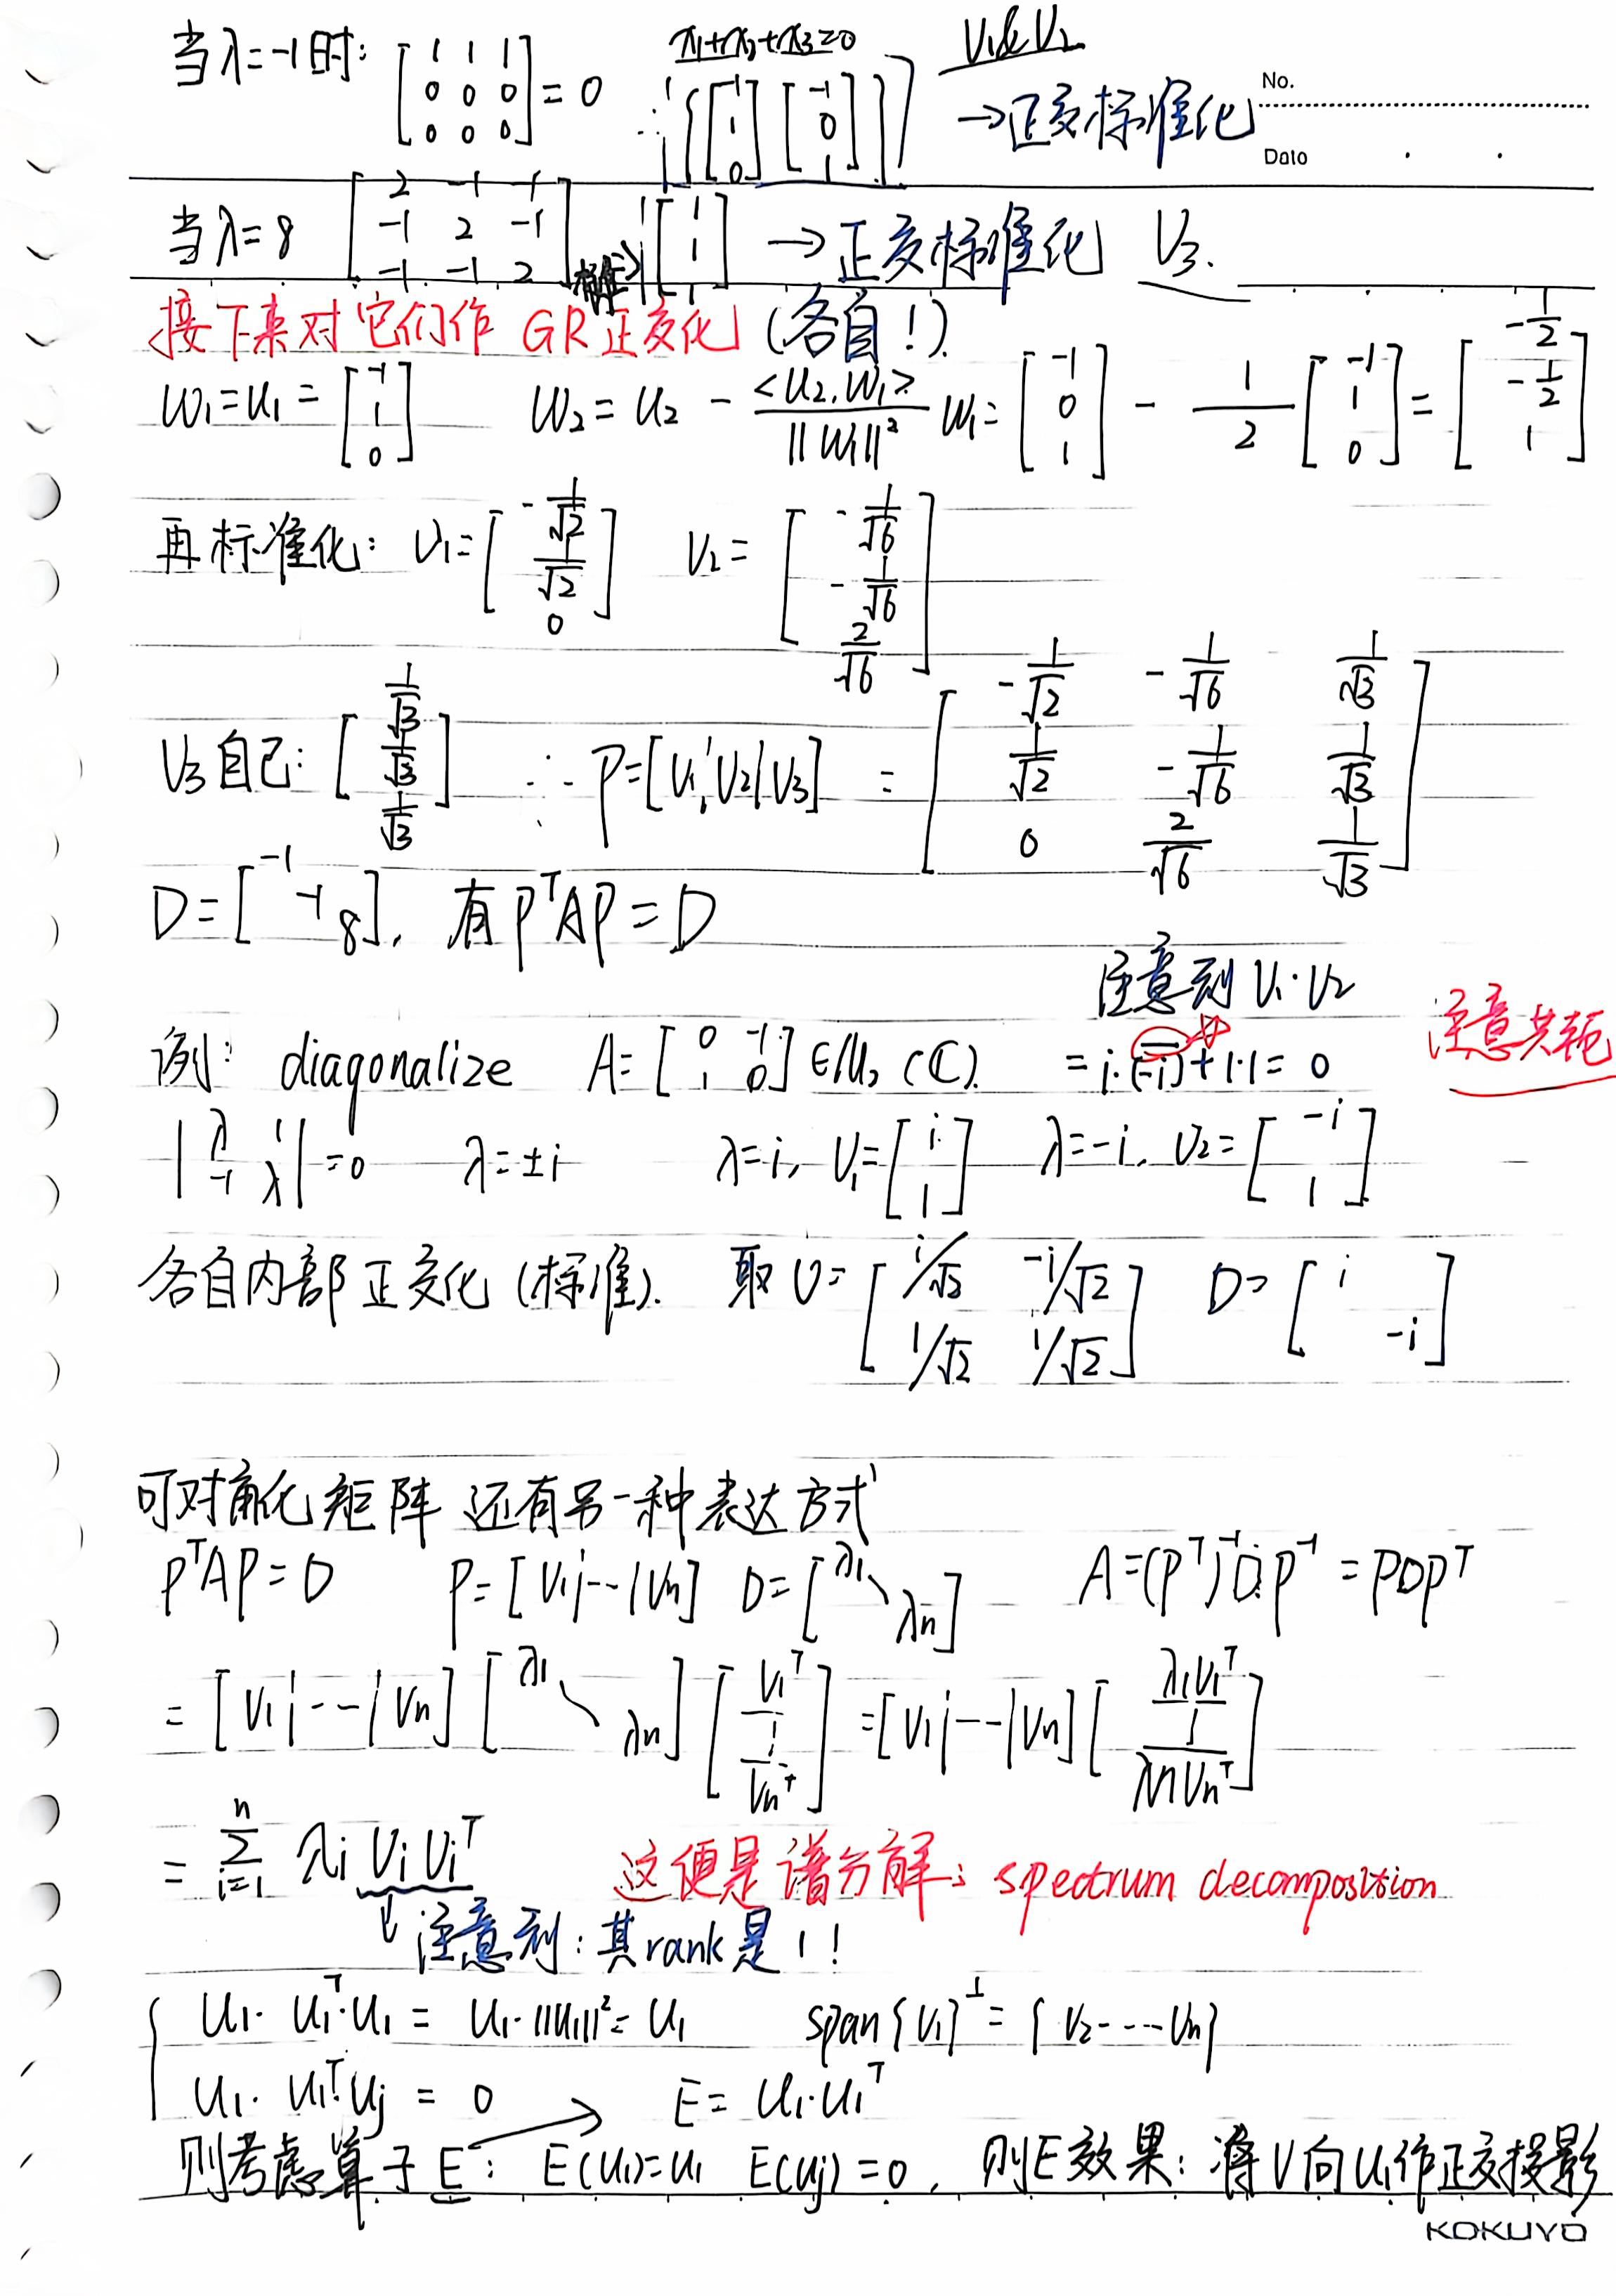 当λ=-1时: [1 1 1; 0 0 0; 0 0 0] = 0 x₁+x₂+x₃=0 ∴ {[-1; 1; 0] [-1; 0; 1]} V₁&V₂ →正交标准化
No.
Date
当λ=8 [2 -1 -1; -1 2 -1; -1 -1 2] [1; 1; 1] → 正交标准化 V₃.
接下来对它们作 GR正交化 (各自!).
W₁=U₁=[-1; 1; 0] W₂=U₂ - <U₂,W₁>/||W₁||² W₁=[-1; 0; 1] - 1/2 [-1; 1; 0]=[-1/2; -1/2; 1]
再标准化: V₁=[-1/√2; 1/√2; 0] V₂=[-1/√6; -1/√6; 2/√6]
V₃自己: [1/√3; 1/√3; 1/√3] ∴ P=[V₁|V₂|V₃] = [-1/√2 -1/√6 1/√3; 1/√2 -1/√6 1/√3; 0 2/√6 1/√3]
D=[-1 -1 8], 有PᵀAP=D
注意到 V₁·V₂
例: diagonalize A=[0 -1; 1 0]∈M₂(ℂ). =i·(-i)‾+1·1=0 注意共轭
|λ 1; -1 λ|=0 λ=±i λ=i, V₁=[i; 1] λ=-i, V₂=[-i; 1]
各自内部正交化(标准). 取U=[i/√2 -i/√2; 1/√2 1/√2] D=[i -i]
可对角化矩阵 还有另一种表达方式
PᵀAP=D P=[V₁|--|Vn] D=[λ₁ ⋱ λn] A=(Pᵀ)⁻¹DP⁻¹=PDPᵀ
=[V₁|--|Vn][λ₁ ⋱ λn][V₁ᵀ; ⋮; Vnᵀ]=[V₁|--|Vn][λ₁V₁ᵀ; ⋮; λnVnᵀ]
=Σᵢ₌₁ⁿ λᵢVᵢVᵢᵀ 这便是谱分解: spectrum decomposition
↓注意到:其rank是1!
{ U₁·U₁ᵀ·U₁=U₁·||U₁||²=U₁ span{V₁}^⊥={V₂----Vn}
U₁·U₁ᵀ·Uj=0 E=U₁·U₁ᵀ
则考虑算子E: E(U₁)=U₁ E(Uj)=0, 则E效果:将V向U₁作正交投影
KOKUYO